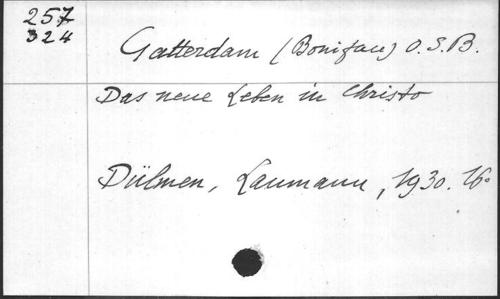 257
324
Gatterdam (Bonifaz) O.S.B.
Das neue Leben in Christo
Dülmen, Laumann, 1930. 16°